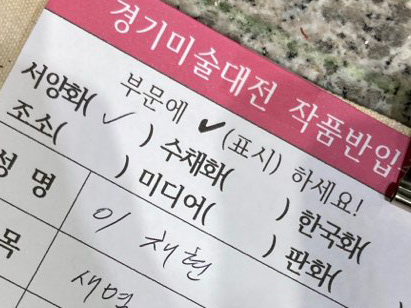 경기미술대전 작품반입
부문에 ✔(표시) 하세요!
서양화( ✓ ) 수채화( ) 한국화(
조소( ) 미디어( ) 판화(
성 명 이 채 현
목 새벽